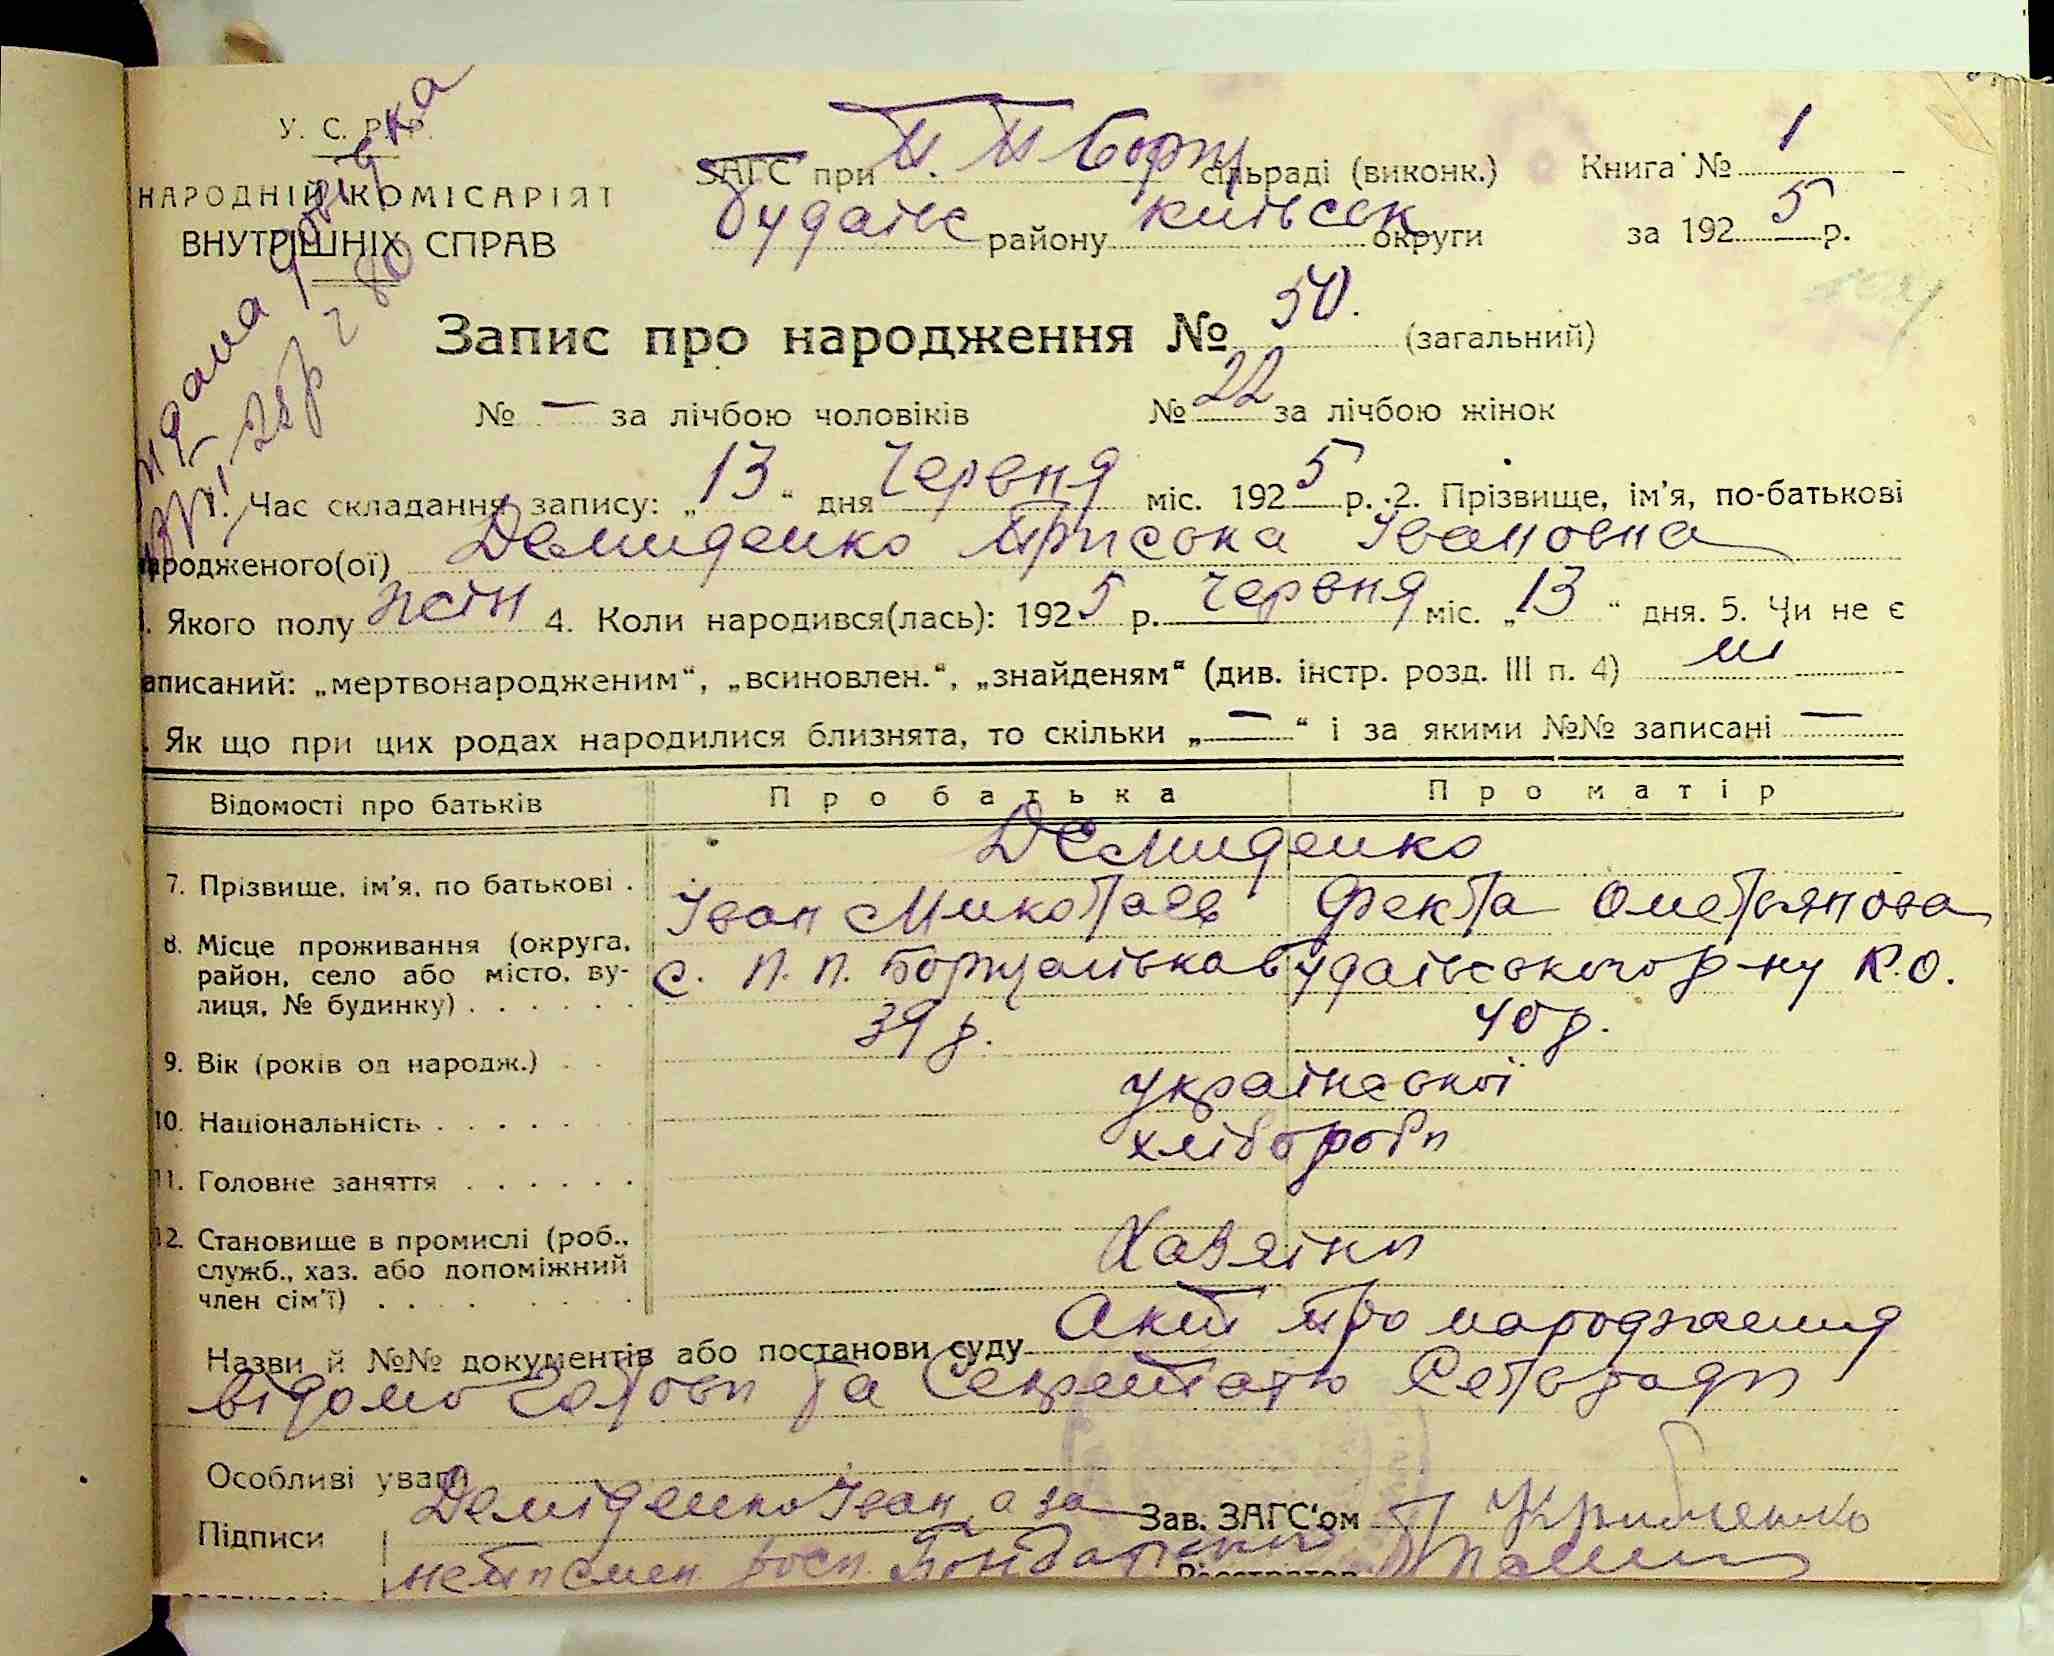 У. С. Р. Р.
НАРОДНІЙ КОМІСАРІЯТ
ВНУТРІШНІХ СПРАВ
видана довідка
ЗАГС при П. П Борщ сільраді (виконк.) Книга № 1
Будаївс району київськ округи за 1925 р.
Запис про народження № 50. (загальний)
№ — за лічбою чоловіків № 22 за лічбою жінок
Час складання запису: „13“ дня Червня міс. 1925 р. 2. Прізвище, ім'я, по-батькові
народженого(ої) Демиденко Приська Івановна
Якого полу жін 4. Коли народився(лась): 1925 р. червня міс. „13“ дня. 5. Чи не є
аписаний: „мертвонародженим“, „всиновлен.“, „знайденям“ (див. інстр. розд. III п. 4) ні
Як що при цих родах народилися близнята, то скільки „—“ і за якими №№ записані —
Відомості про батьків Про батька Про матір
Демиденко
7. Прізвище, ім'я, по батькові . Іван Миколаєв Фекла Омельянова
8. Місце проживання (округа, район, село або місто, вулиця, № будинку) . . . . . . с. П. П. Борщагівка Будаївського р-ну К.О.
9. Вік (років од народж.) . . 39 р. 40 р.
10. Національність . . . . . . . української
11. Головне заняття . . . . . . хлібороби
12. Становище в промислі (роб., служб., хаз. або допоміжний член сім'ї) . . . . . . . . Хазяїни
Назви й №№ документів або постанови суду Акт про народження
відомо Голови та Секретарю Сельради
Особливі уваги
Підписи Деміденко Іван, а за Зав. ЗАГС'ом
неписмен. росп.
Реєстратор